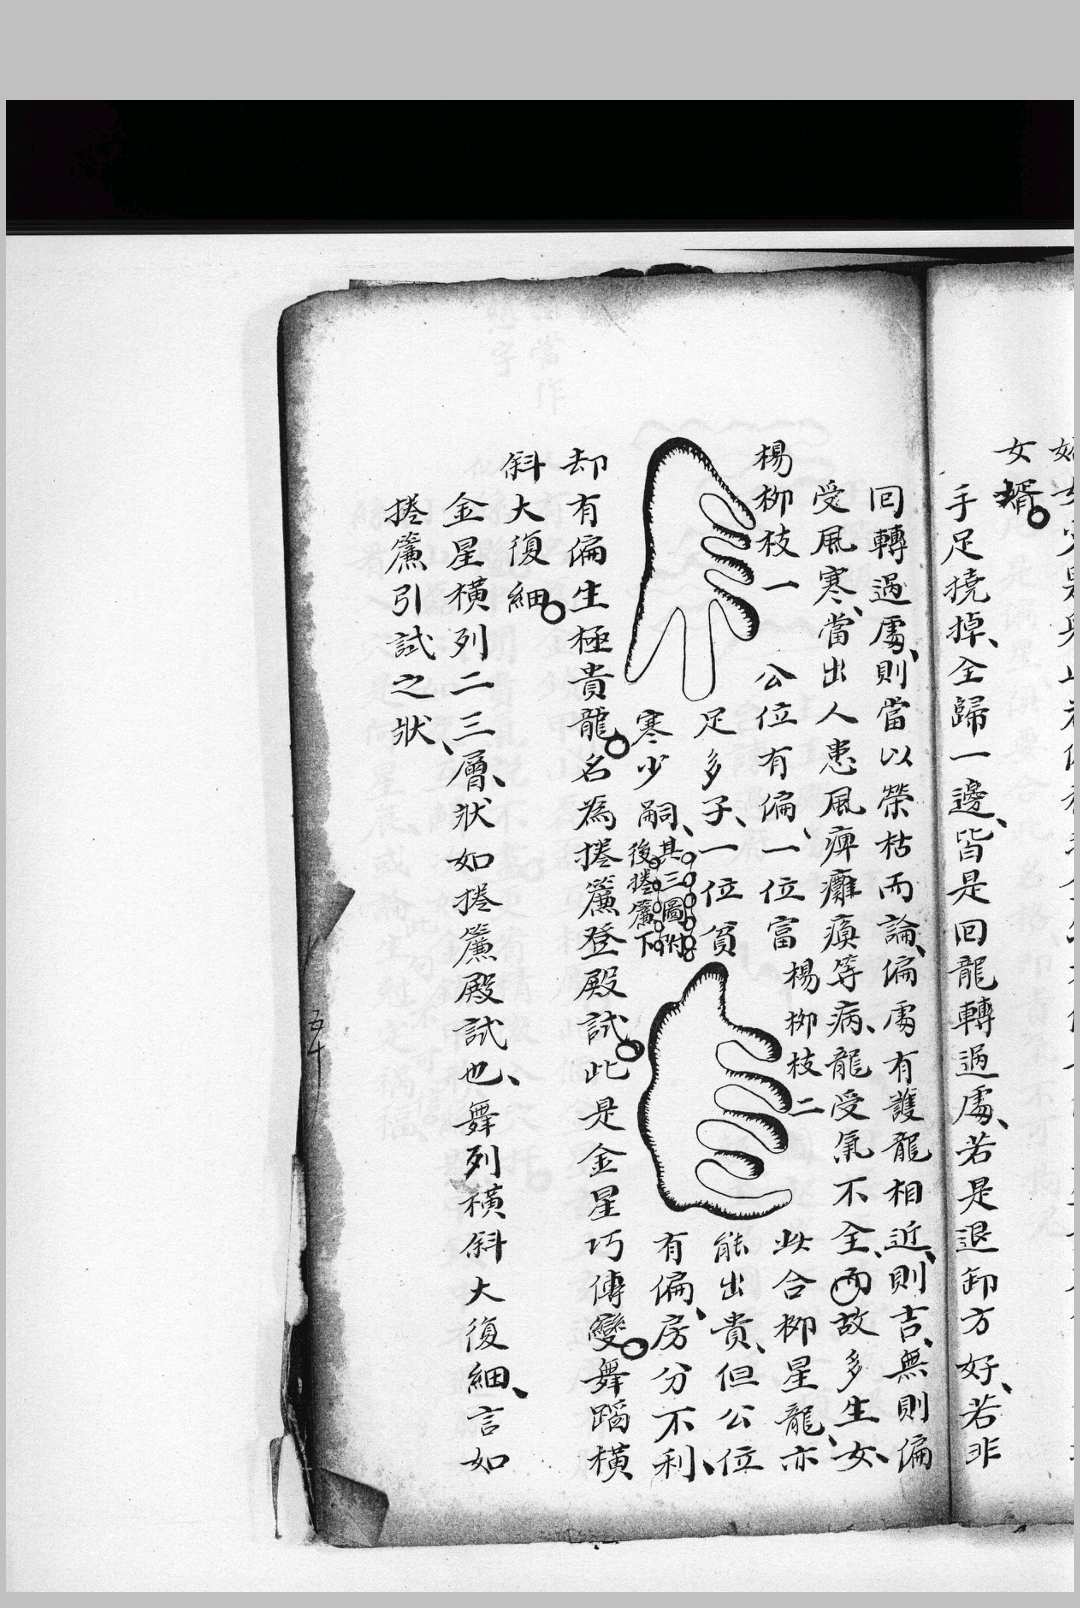 女婿
手足撓掉全歸一邊皆是回龍轉過處若是退卸方好若非
回轉過處則當以榮枯而論偏處有護龍相近則吉無則偏
受風寒當出人患風痺癱瘓等病龍受氣不全而故多生女
楊柳枝一
公位有偏一位富
足多子一位貧
寒少嗣
其三圖附
後捲簾下
楊柳枝二
此合柳星龍亦
能出貴但公位
有偏房分不利
却有偏生極貴龍名為捲簾登殿試此是金星巧傳變舞蹈橫
斜大復細
金星橫列二三層狀如捲簾殿試也舞列橫斜大復細言如
捲簾引試之狀
五十